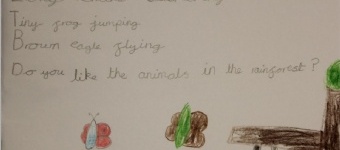 Tiny frog jumping
Brown eagle flying
Do you like the animals in the rainforest?